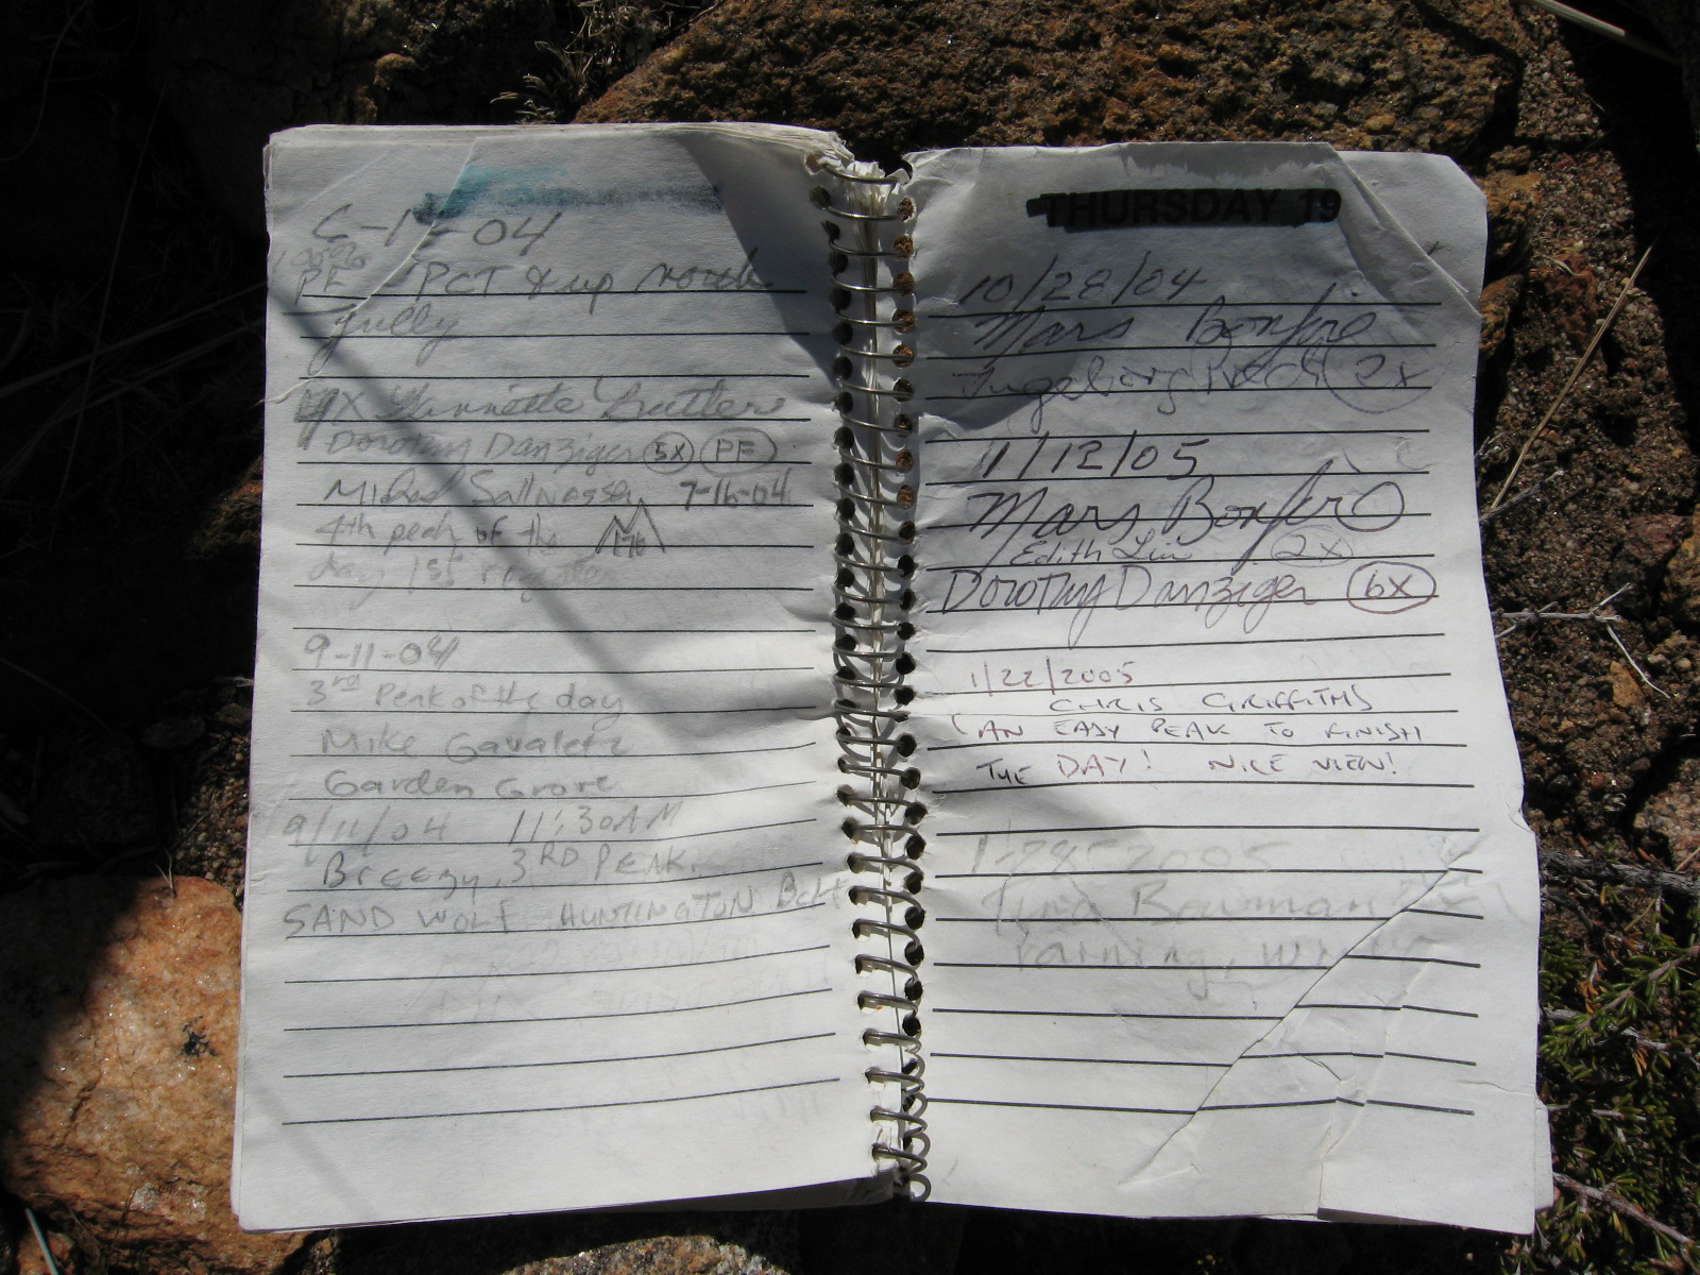 -04
PF PCT & up north
gully
Dorothy Danziger 5X PF
7-16-04
4th peak of the
day 1st
9-11-04
3rd Peak of the day
Mike
Garden Grove
9/11/04 11:30AM
Breezy, 3RD PEAK.
SAND WOLF HUNTINGTON
THURSDAY 19
10/28/04
Mars Bonfire
Ingeborg 2x
1/12/05
Mars Bonfire
Edith Liu 2x
Dorothy Danziger 6x
1/22/2005
CHRIS GRIFFITHS
AN EASY PEAK TO FINISH
THE DAY! NICE VIEW!
2005
Tina Bowman